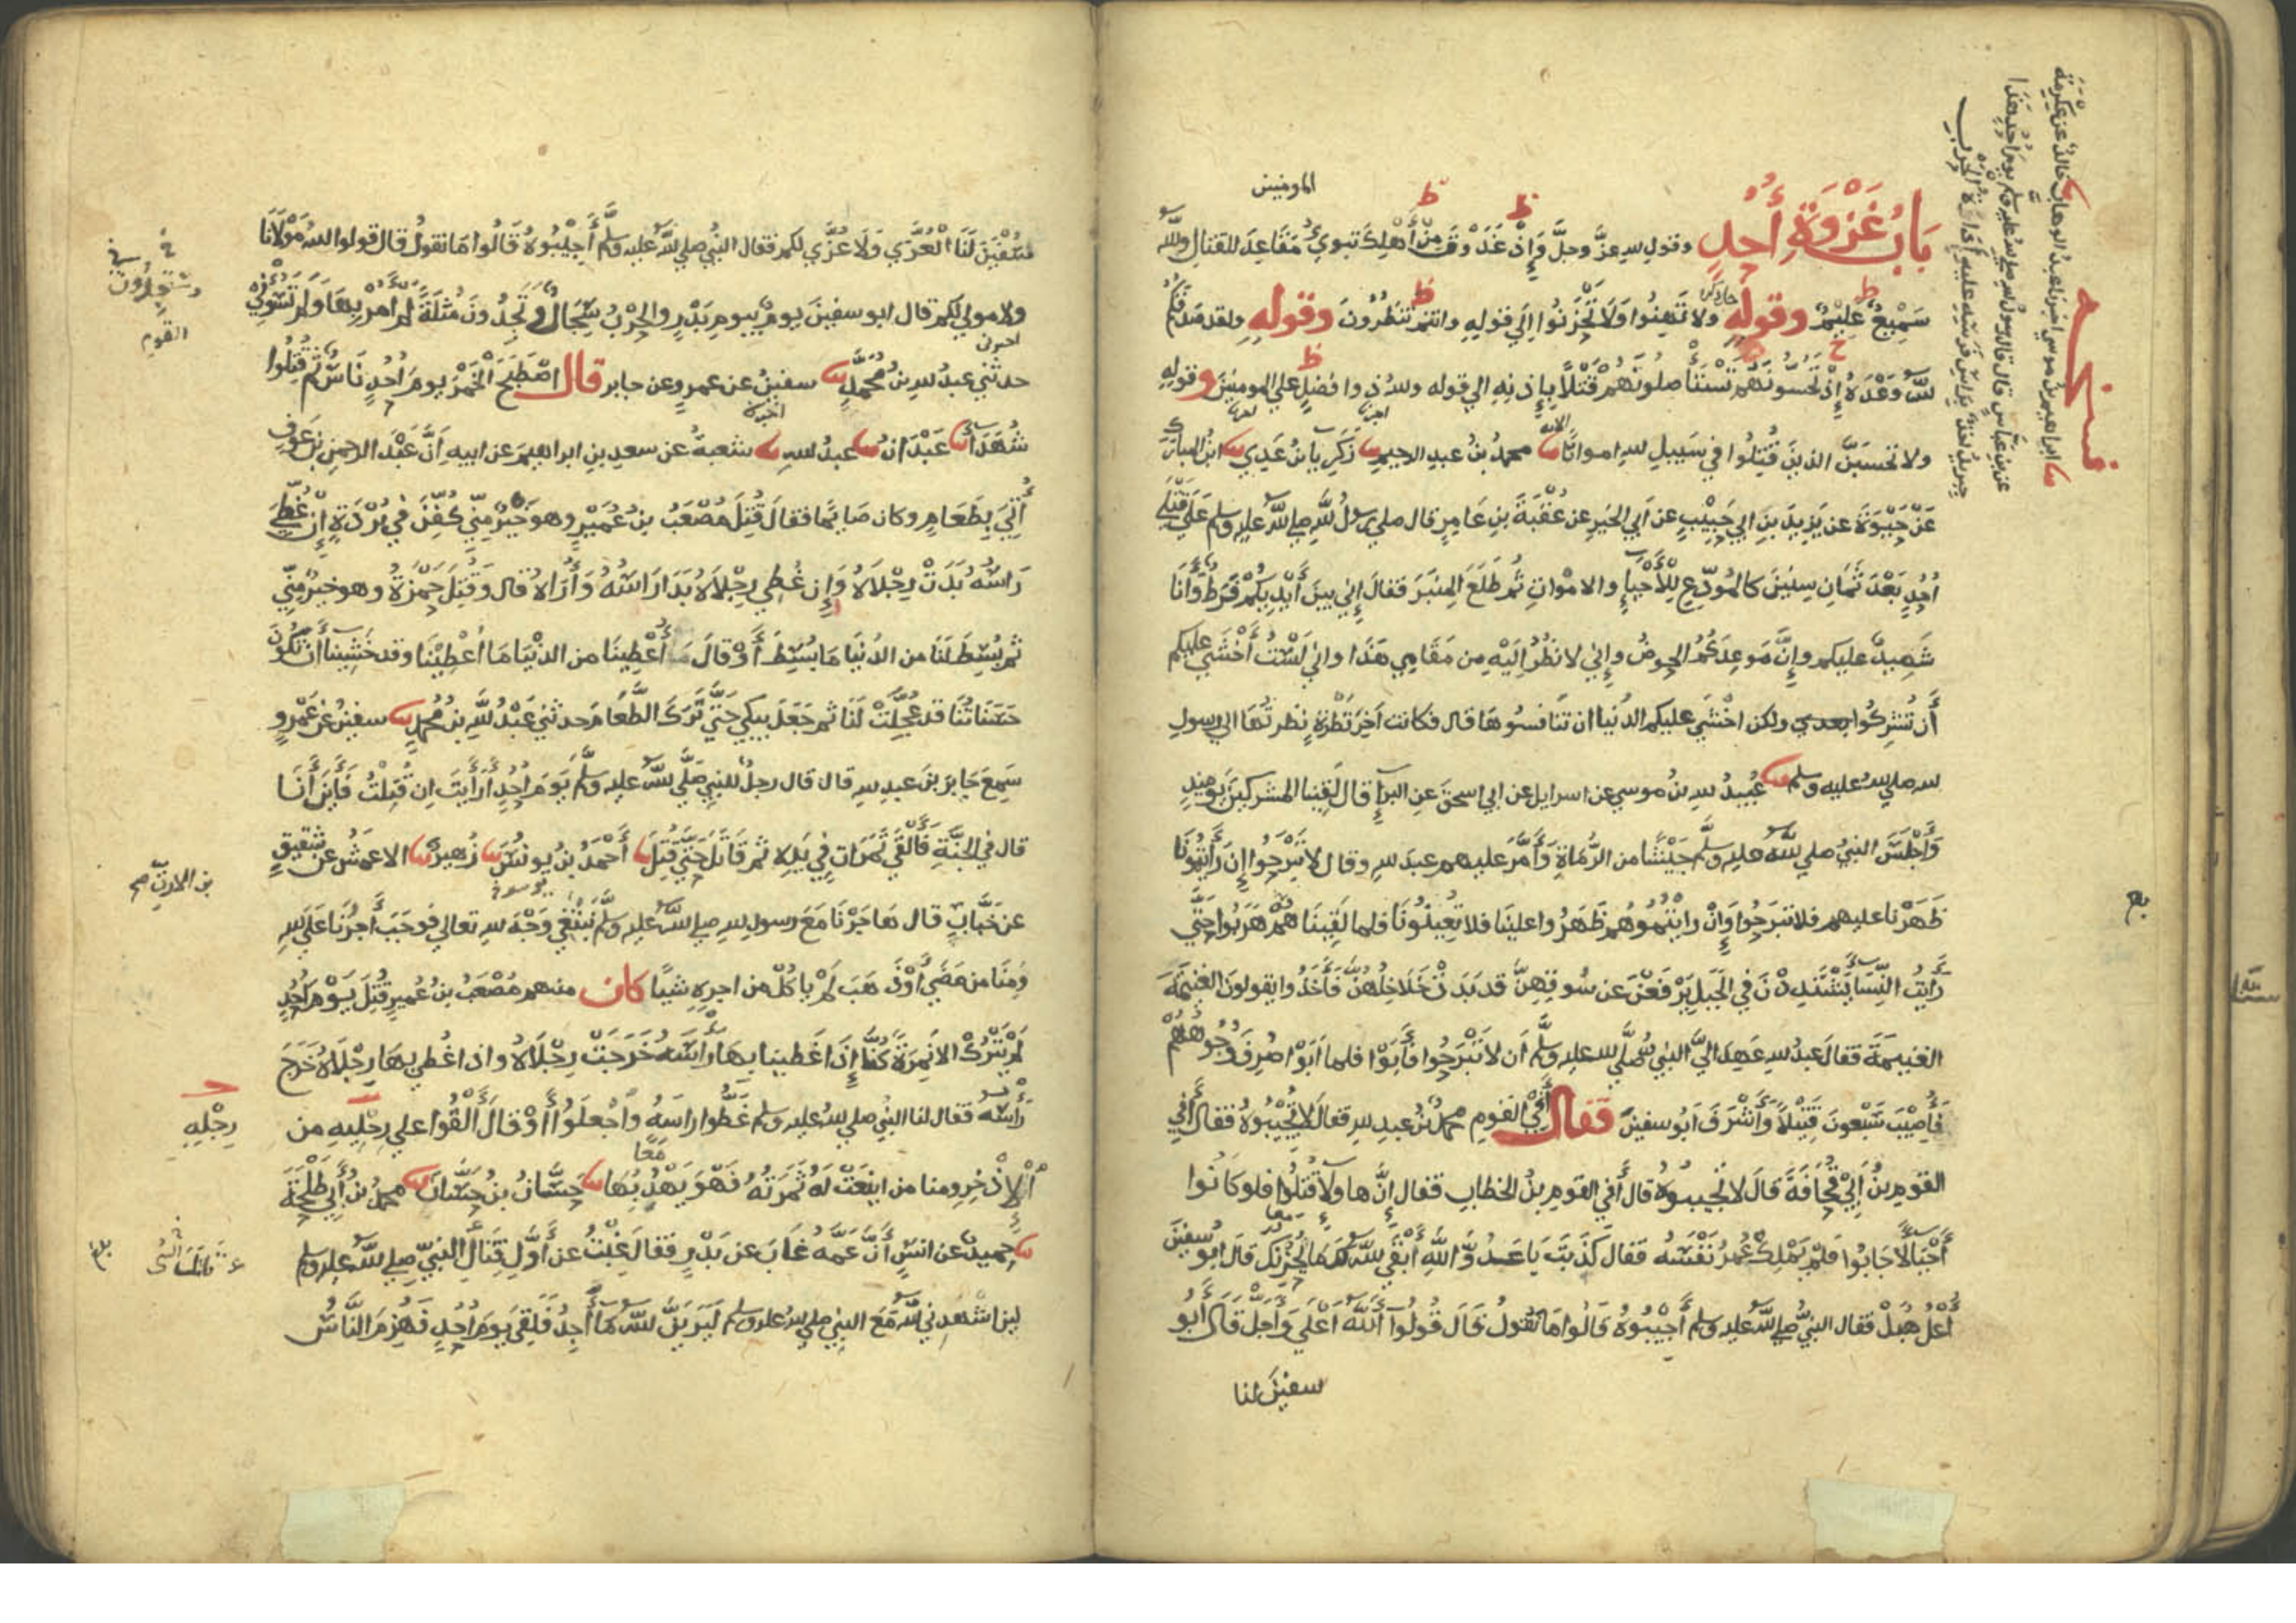 المومنين
بَابُ غَزْوَةِ أُحُدٍ وقول الله عزَّ وجلَّ وَإِذْ غَدَوْتَ مِنْ أَهْلِكَ تبوي مَقَاعِدَ للقتال والله
سَمِيعٌ عَلِيمٌ وقوله ولا تَهِنُوا وَلَا تَحْزَنُوا إلى قوله وانتم تنظُرُونَ وقوله ولقد صَدَقَكُمُ
الله وَعْدَهُ إِذْ تَحُسُّونَهُم تَسْتَأْصِلُونَهُمْ قَتْلًا بِإِذنِهِ الى قوله والله ذو افضل على المومنين وقوله
ولا تحسبَنَّ الذينَ قُتِلُوا في سَبِيلِ الله امواتًا الاية محمدُ بنُ عبدِ الرحيم زَكَرِيا بنُ عَدِي ابنُ المبارك
عَنْ حَيْوَةَ عن يَزِيدَ بنِ ابي حَبِيبٍ عن أبي الخيرِ عن عُقْبَةَ بنِ عَامِرٍ قال صلى رسولُ اللهِ صلى الله عليه وسلم عَلَى قَتْلَى
أُحُدٍ بَعْدَ ثَمَانِ سِنِينَ كالمُوَدِّعِ لِلْأَحْيَاءِ والامْوَاتِ ثُم طَلَعَ المِنبَرَ فَقَالَ إِني بينَ أَيْدِيكُمْ فَرَطٌ وَأَنَا
شَهِيدٌ عليكم وإِنَّ مَوعِدَكُمُ الحوضُ وإني لانظُرُ إلَيْهِ مِن مَقَامِي هَذَا واني لَسْتُ أَخْشَى عليكم
أَن تُشْرِكُوا بعدي ولكن اخْشَى عليكم الدُّنيا ان تَنَافسُوهَا قال فكانت آخِرَ نَظْرَةٍ نظرتُهَا الى رسولِ
الله صلى الله عليه وسلم عُبيدُ الله بنُ موسى عن اسرايل عن ابي اسحقَ عنِ البراءِ قال لَقِينا المشركينَ يَوميذٍ
وَأَجْلَسَ النبيُّ صلى الله عليه وسلَّم جَيْشًا من الرُّمَاةِ وَأَمَّرَ عليهم عبدَ الله وقال لا تَبْرَحُوا إن رَأَيْتُمُونَا
ظَهَرْنا عليهم فلا تبرَحُوا وَإِنْ رايْتُمُوهُم ظَهَرُوا علينَا فلا تُعِينُونَا فلما لَقِينَا هُمْ هَرَبُوا حَتَّى
رَأَيْتُ النِّسَاءَ يَشْتَدِدْنَ في الجَبَلِ يَرْفَعْنَ عن سُوقِهِنَّ قد بَدَتْ خَلَاخِلُهُنَّ فَأَخَذُوا يقولونَ الغنيمَةَ
الغنيمَةَ فقالَ عبدُ الله عَهِدَ إليَّ النبيُّ صلَّى الله عليه وسلَّم أن لا تَبْرَحُوا فَأَبَوْا فلما أَبَوْا صُرِفَ وُجُوهُهُمْ
فَأُصِيْبَ سَبْعونَ قَتِيلًا وَأَشْرَفَ أَبُو سفينَ فقال أَفِي القومِ محمدٌ بنُ عبدِ الله فقال لا تُجِيبُوهُ فقال أَفي
القومِ بنُ أَبي قُحَافَةَ قَالَ لا تُجيبوهُ قال أَفي القوم بنُ الخطابِ فقال إِنَّ هاولاءِ قُتِلُوا فلو كَانُوا
أَحْيَاءً لأَجَابُوا فلم يَمْلِكْ عُمرُ نَفْسَهُ فقال كَذَبْتَ يَا عَدُوَّ اللهِ أَبْقَى الله لَكَ مَا يُحْزِنُكَ قال ابو سفينَ
أُعْلُ هُبَلْ فقال النبيُّ صلى الله عليه وسلم أَجِيْبُوهُ قَالُوا مَا نَقُولُ قَالَ قُولُوا اللهُ أَعْلَى وَأَجَلُّ قَالَ أَبُو
سفينَ لنا
نسخة
ابراهيمُ بنُ موسى اخبرنا عبدُ الوهاب خَالدٌ عن عِكْرِمَةَ
عن بنِ عَبَّاسٍ قال قال رسولُ الله صلى الله عليه وسلم يوم أُحدٍ هَذَا
جبريلُ اخذٌ براسِ فرسِه عليه أَدَاةُ الحَرْبِ
سفينَ لَنَا الْعُزَّى وَلَا عُزَّى لكم فقال النبيُّ صلى الله عليه وسلَّم أَجِيْبُوهُ قَالُوا مَا نقولُ قال قولوا اللهُ مَوْلَانَا
ولا مولى لكم قال ابو سفينَ يومٌ بيومِ بَدْرٍ والحَرْبُ سِجَالٌ وَتَجِدُونَ مُثْلَةً لم آمُرْ بِهَا وَلم تَسُؤْنِي
حدثني عبدُ الله بنُ مُحَمَّدٍ سفينُ عن عمرٍو عن جابر قال اصْطَبَحَ الخَمْرَ يومَ أُحُدٍ نَاسٌ ثُم قُتِلُوا
شُهَدَاءَ عَبْدَانُ عبدُ اللهِ شعبةُ عن سعدِ بنِ ابراهيمَ عن ابيه أَنَّ عَبْدَ الرحمنِ بن عَوفٍ
أُتِيَ بِطَعَامٍ وكان صَائِمًا فقالَ قُتِلَ مُصْعَبُ بنُ عُمَيْرٍ وهو خَيْرٌ مِنِّي كُفِّنَ في بُرْدَةٍ إِنْ غُطِّيَ
رَاسُهُ بَدَتْ رِجْلَاهُ وَإِن غُطِّيَ رِجْلَاهُ بَدَا رَاسُهُ وَأُرَاهُ قال وَقُتِلَ حَمْزَةُ وهو خَيرٌ مِنِّي
ثم بُسِطَ لَنَا من الدُّنيَا مَا بُسِطَ أَوْ قالَ مَا أُعْطِينَا من الدنْيَا مَا أُعْطِيْنَا وقد خَشِينا أَن تكُونَ
حَسَنَاتُنَا قد عُجِّلَتْ لَنَا ثم جَعَلَ يبكي حَتَّى تَرَكَ الطَّعَامَ حدثني عَبْدُ اللهِ بنُ مُحمدٍ سفينُ عن عَمْرٍو
سَمِعَ جَابرَ بنَ عبدِ اللهِ قال قال رجلٌ للنبيِّ صَلَّى الله عليه وسلَّم يَومَ أُحُدٍ أَرَأَيتَ ان قُتِلْتُ فَأَيْنَ أَنَا
قال في الجَنَّةِ فَأَلْقَى تَمَرَاتٍ فِي يَدِهِ ثم قَاتَلَ حَتَّى قُتِلَ أَحْمَدُ بنُ يونُسَ زُهيرٌ الاعمَشُ عن شقيقٍ
عن خَبَّابٍ قال هَاجَرْنَا مَعَ رسولِ اللهِ صلى الله عليه وسلَّم نَبْتَغِي وَجْهَ الله تعالى فوجَبَ أجرُنَا عَلَى اللهِ
وَمِنَّا من مَضَى أَوْ ذَهَبَ لَمْ ياكُلْ من اجرِهِ شيًا كان منهم مُصْعَبُ بنُ عُميرٍ قُتِلَ يَوْمَ أُحُدٍ
لَمْ يَتْرُكْ الا نَمِرَةً كُنَّا إِذَا غَطينا بِهَا رَأْسَهُ خَرَجَتْ رِجْلَاهُ واذا غُطي بِهَا رِجْلَاهُ خَرَجَ
رَأْسُهُ فقال لنا النبيُّ صلى الله عليه وسلم غَطُّوا راسَهُ وَاجْعَلُوا أَوْ قَالَ أَلْقُوا على رِجْلَيهِ من
الإِذْخِرِ ومنا من اينَعَتْ لَهُ ثَمَرَتُهُ فَهْوَ يَهْدِبُهَا حَسَّانُ بنُ حَسَّانَ محمدُ بنُ أَبِي طَلْحَةَ
حُميدٌ عن انسٍ أَنَّ عَمَّهُ غَابَ عن بَدْرٍ فقالَ غِبْتُ عن أَوَّلِ قِتَالِ النبيِّ صلى الله عليه وسلم
لين اشهدني الله مَعَ النبيِّ صلى الله عليه وسلم لَيَرَيَنَّ الله مَا أُجِدُّ فَلَقِيَ يَومَ أُحُدٍ فَهُزِمَ النَّاسُ
وستجدُون
القوم
بن الارتِّ صح
رِجْلِهِ